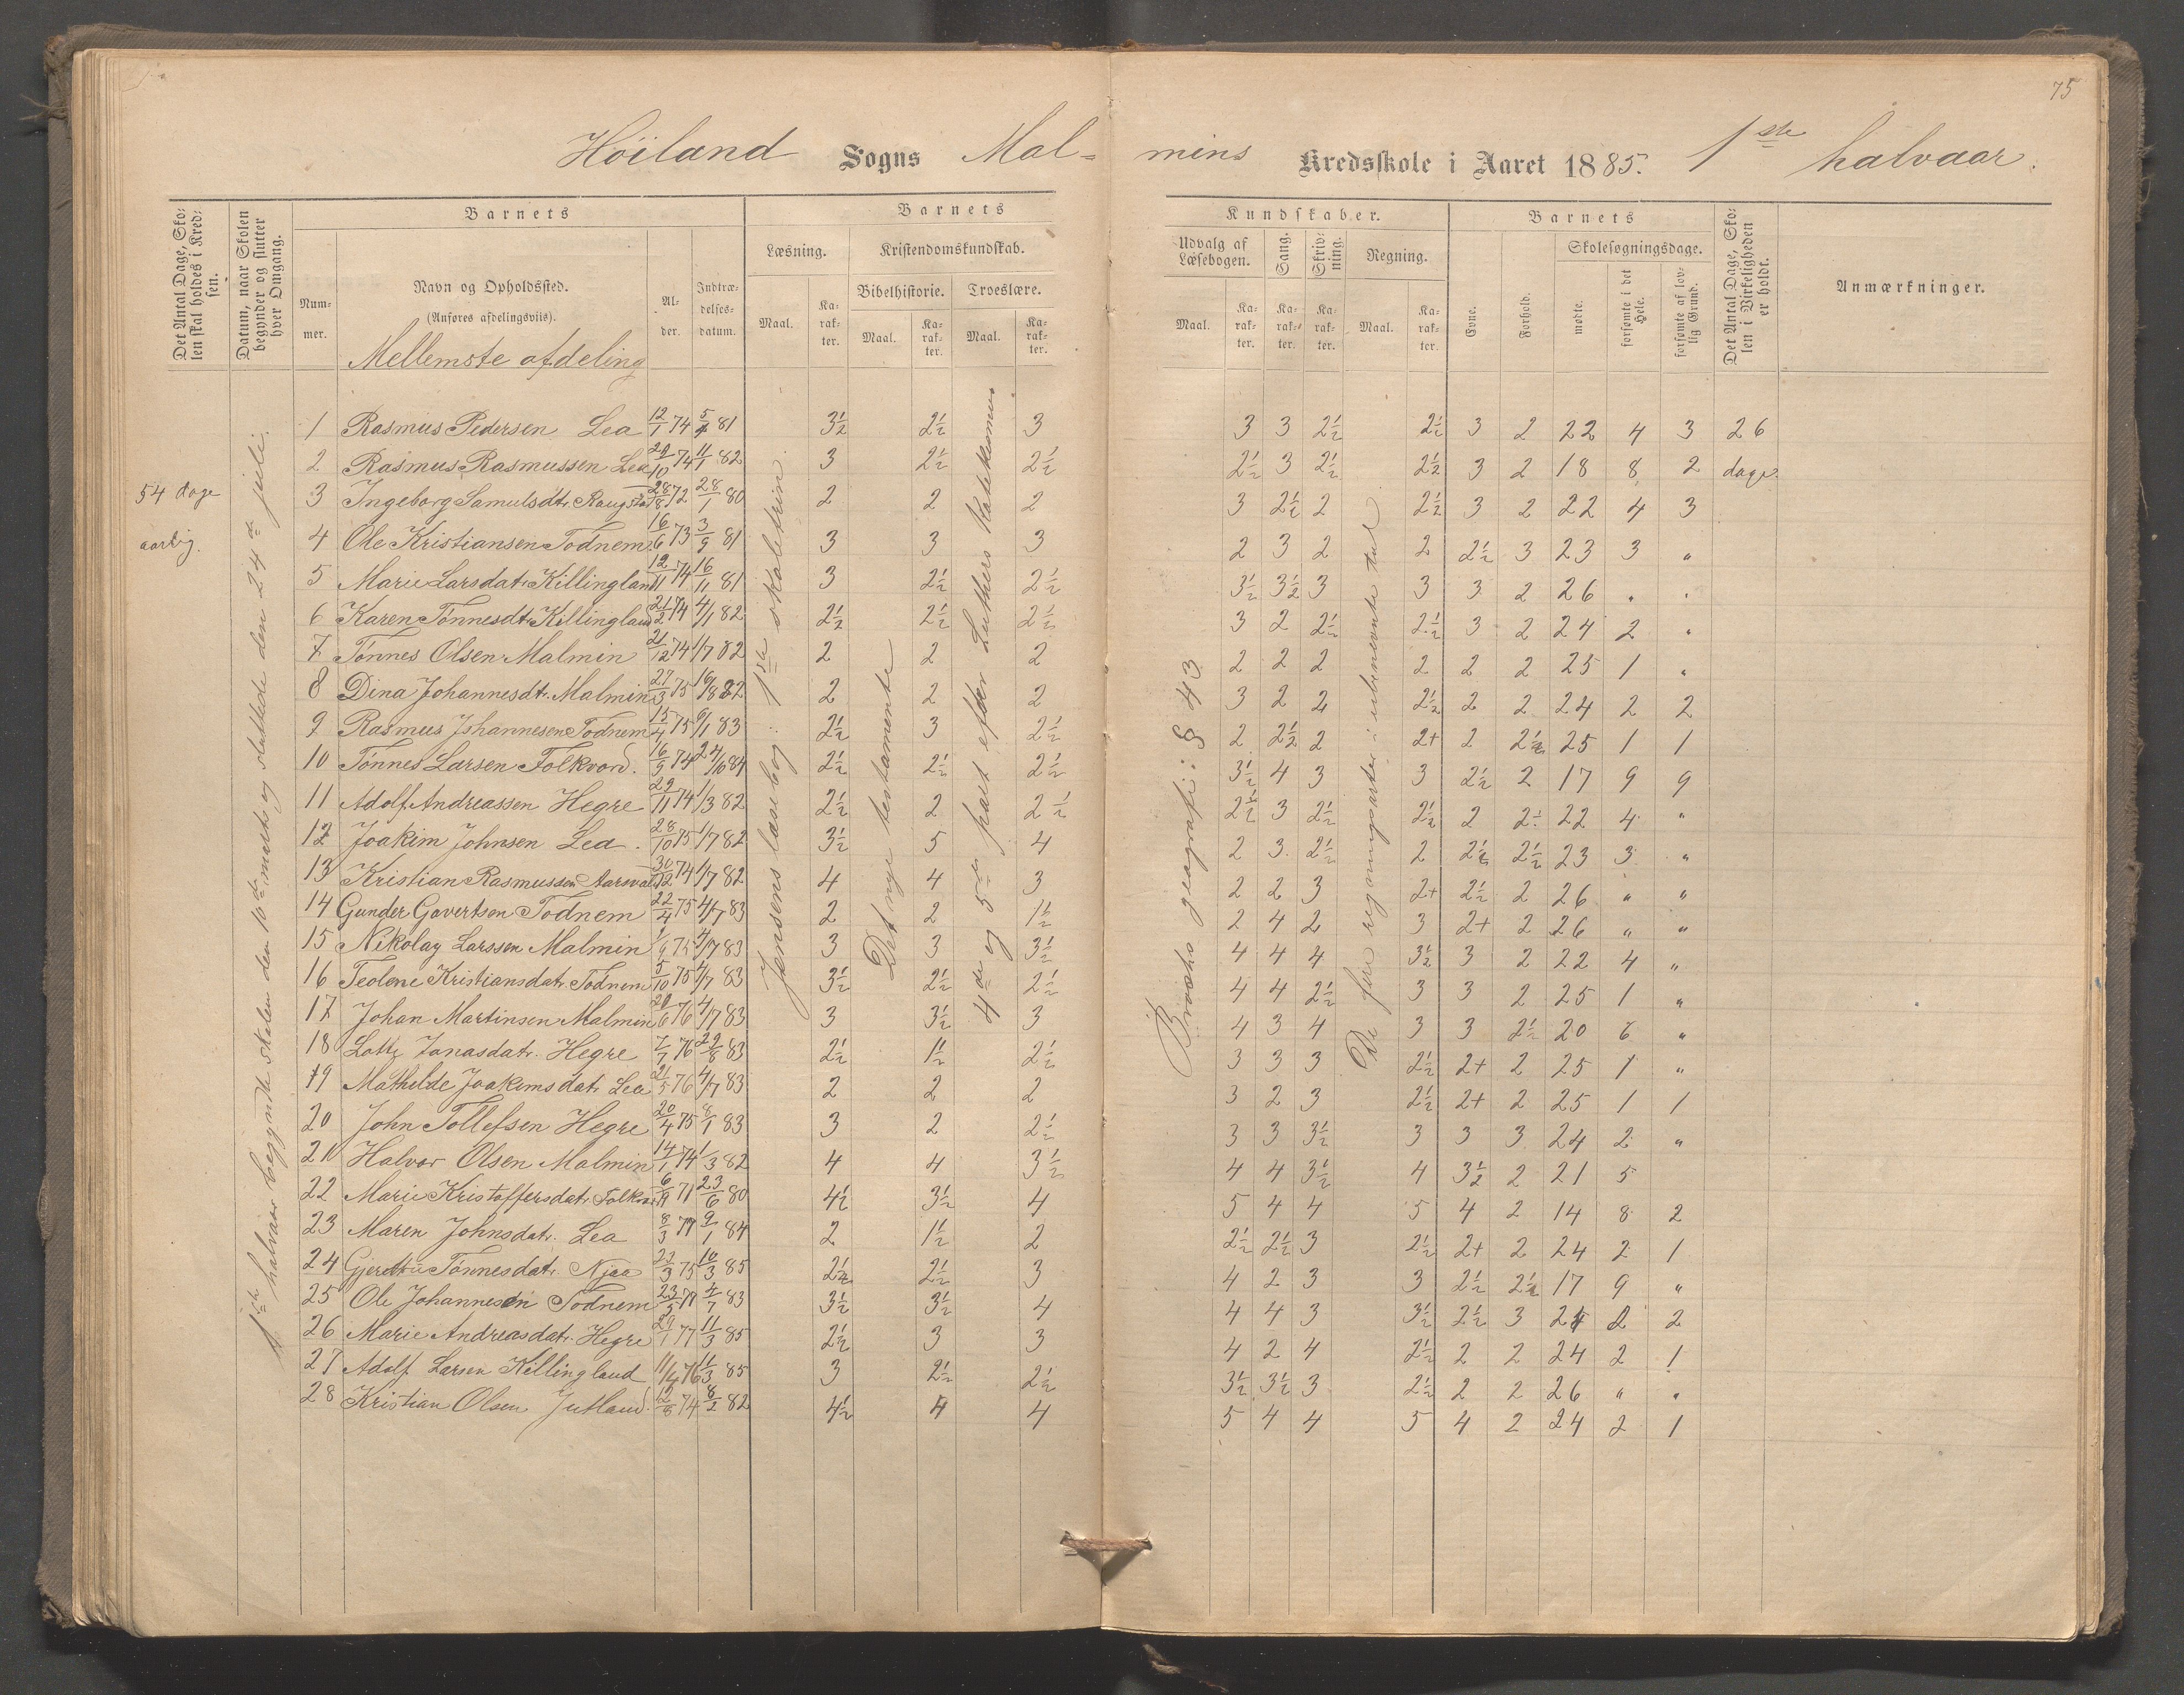 75
Höiland Sogns Mal-
mins Kredsskole i Aaret 1885. 1ste halvaar.
Det Antal Dage, Skolen skal holdes i Kredsen.
Datum, naar Skolen begynder og slutter hver Omgang.
Barnets
Nummer.
Navn og Opholdssted.
(Anføres afdelingsviis).
Mellemste afdeling
Alder.
Indtrædelsesdatum.
Barnets
Læsning.
Kristendomskundskab.
Bibelhistorie. Troeslære.
Maal. Karakter. Maal. Karakter. Maal. Karakter.
Kundskaber.
Udvalg af Læsebogen. Sang. Skrivning. Regning.
Maal. Karakter. Karakter. Karakter. Maal. Karakter.
Barnets
Evne. Forhold.
Skolesøgningsdage.
mødte. forsømte i det Hele. forsømte af lovlig Grund.
Det Antal Dage, Skolen i Virkeligheden er holdt.
Anmærkninger.
54 dage
aarlig.
1ste halvaar begyndte skolen den 10de marts og sluttede den 24de juli.
Jensens læsebog: 1ste skoletrin.
Det nye testamente
4de og 5te part efter Luthers Katekismus
geografi: § 43
De fire regningsarter i ubenevnte tal
1 Rasmus Pedersen Lea 12/1 74 5/4 81 3½ 2½ 3 3 3 2½ 2½ 3 2 22 4 3 26
2 Rasmus Rasmussen Lea 29/10 74 11/1 82 3 2½ 2½ 2½ 3 2½ 2½ 3 2 18 8 2 dage.
3 Ingeborg Samulsdtr. 28/8 72 28/1 80 2 2 2 3 2½ 2 2½ 3 2 22 4 3
4 Ole Kristiansen Todnem 16/6 73 3/9 81 3 3 3 2 3 2 2 2½ 3 23 3 "
5 Marie Larsdatr. Killingland 12/11 74 16/11 81 3 2½ 2½ 3½ 3½ 3 3 3 2 26 " "
6 Karen Tönnesdt. Killingland 21/2 74 4/1 82 2½ 2½ 2½ 3 2 2½ 2½ 3 2 24 2 "
7 Tönnes Olsen Malmin 21/12 74 1/7 82 2 2 2 2 2 2 2 2 2 25 1 "
8 Dina Johannesdt. Malmin 27/3 75 16/8 82 2 2 2 3 2 2 2½ 2 2 24 2 2
9 Rasmus Johannesen Todnem 15/4 75 6/1 83 2½ 3 2½ 2 2½ 2 2+ 2 2½ 25 1 1
10 Tönnes Larsen Folkvord. 16/9 74 24/10 84 2½ 2½ 2½ 3½ 4 3 3 2½ 2 17 9 9
11 Adolf Andreassen Hegre 29/11 74 1/3 82 2½ 2 2½ 2½ 3 2½ 2½ 2 2½ 22 4 "
12 Joakim Johnsen Lea 28/10 75 1/7 82 3½ 5 4 2 3 2½ 2 2½ 2½ 23 3 "
13 Kristian Rasmussen 30/12 74 1/7 82 4 4 3 2 2 3 2+ 2½ 2 26 " "
14 Gunder Govertsen Todnem 22/4 75 4/7 83 2 2 1½ 2 4 2 3 2+ 2 26 " "
15 Nikolay Larssen Malmin 75 4/7 83 3 3 3½ 4 4 4 3½ 3 2 22 4 "
16 Teolene Kristiansdatr. Todnem 5/10 75 4/7 83 3½ 2½ 2½ 4 4 2½ 3 3 2 25 1 "
17 Johan Martinsen Malmin 20/6 76 4/7 83 3 3½ 3 4 3 4 3 3 2½ 20 6 "
18 Jonasdatr. Hegre 7/7 76 29/8 83 2½ 1½ 2½ 3 3 3 2½ 2+ 2 25 1 "
19 Mathilde Joakimsdatr. Lea 21/5 76 4/7 83 2 2 2 3 2 3 2½ 2+ 2 25 1 1
20 John Tollefsen Hegre 20/4 75 8/1 83 3 2 2½ 3 3 3½ 3 3 3 24 2 "
21 Halvor Olsen Malmin 14/1 74 1/3 82 4 4 3½ 4 4 3½ 4 3½ 2 21 5
22 Marie Kristoffersdatr. 71 23/6 80 4½ 3½ 4 5 4 4 5 4 2 14 8 2
23 Maren Johnsdatr. Lea 8/3 9/1 84 2 1½ 2 2½ 2½ 3 2½ 2+ 2 24 2 1
24 Tönnesdatr. Njaa 23/3 75 10/3 85 2½ 2½ 3 4 2 3 3 2½ 2½ 17 9 "
25 Ole Johannesen Todnem 23/5 4/7 83 3½ 3½ 4 4 4 3 3½ 2½ 3 24 2 2
26 Marie Andreasdatr. Hegre 29/1 77 11/3 85 2½ 3 3 4 2 4 2½ 2 2 24 2 1
27 Adolf Larsen Killingland 76 11/3 85 3 2½ 2½ 3½ 3½ 3 2½ 2 2 26 " "
28 Kristian Olsen 12/8 74 8/2 82 4½ 4 4 5 4 4 5 4 2 24 2 1